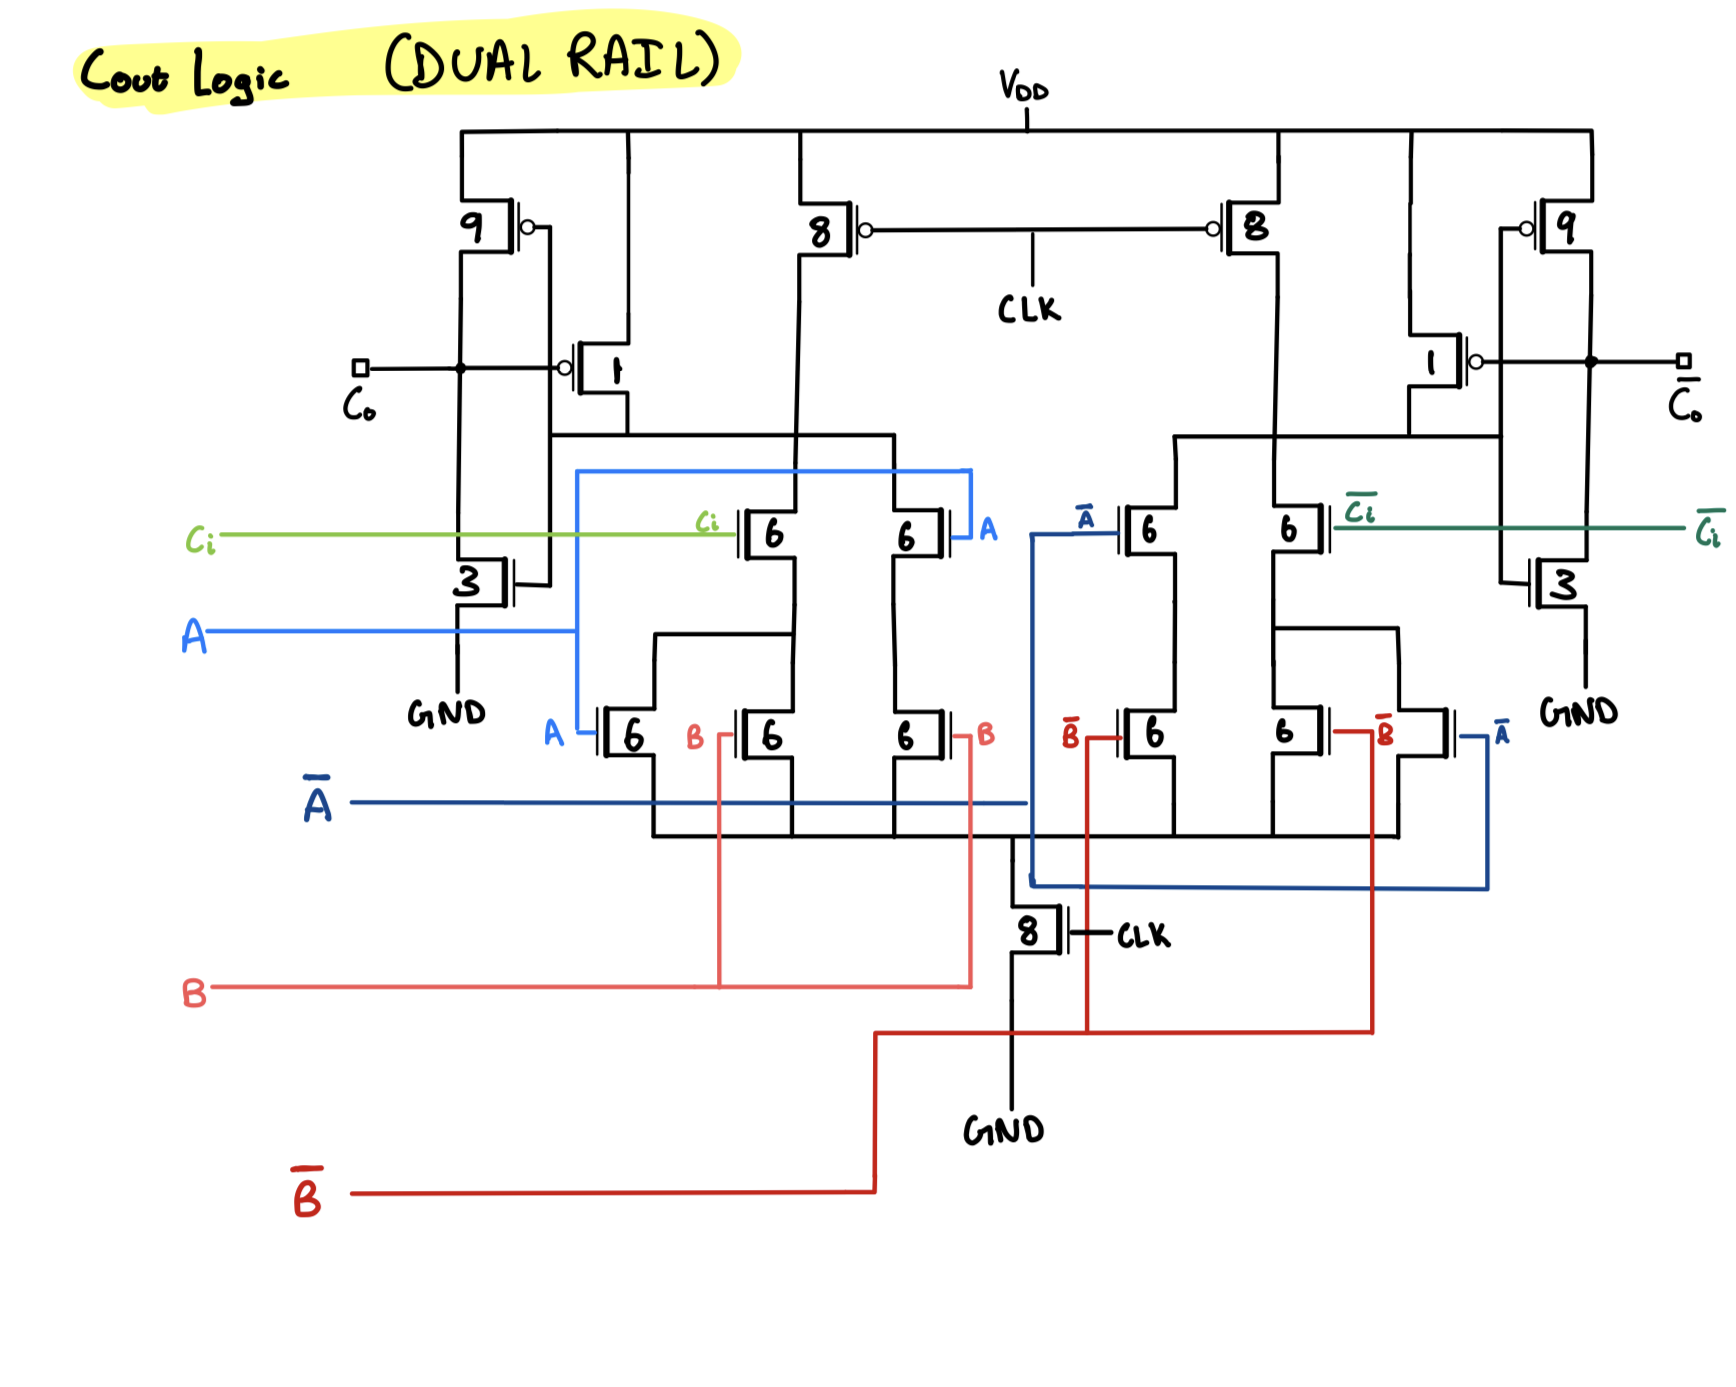 Cout Logic (DUAL RAIL)
VDD
9 8 8 9
CLK
1 1
Co C̅o̅
Ci Ci 6 6 A A̅ 6 6 C̅i̅ C̅i̅
3 3
A
GND GND
A 6 B 6 6 B B̅ 6 6 B̅ A̅
A̅
8 CLK
B
GND
B̅